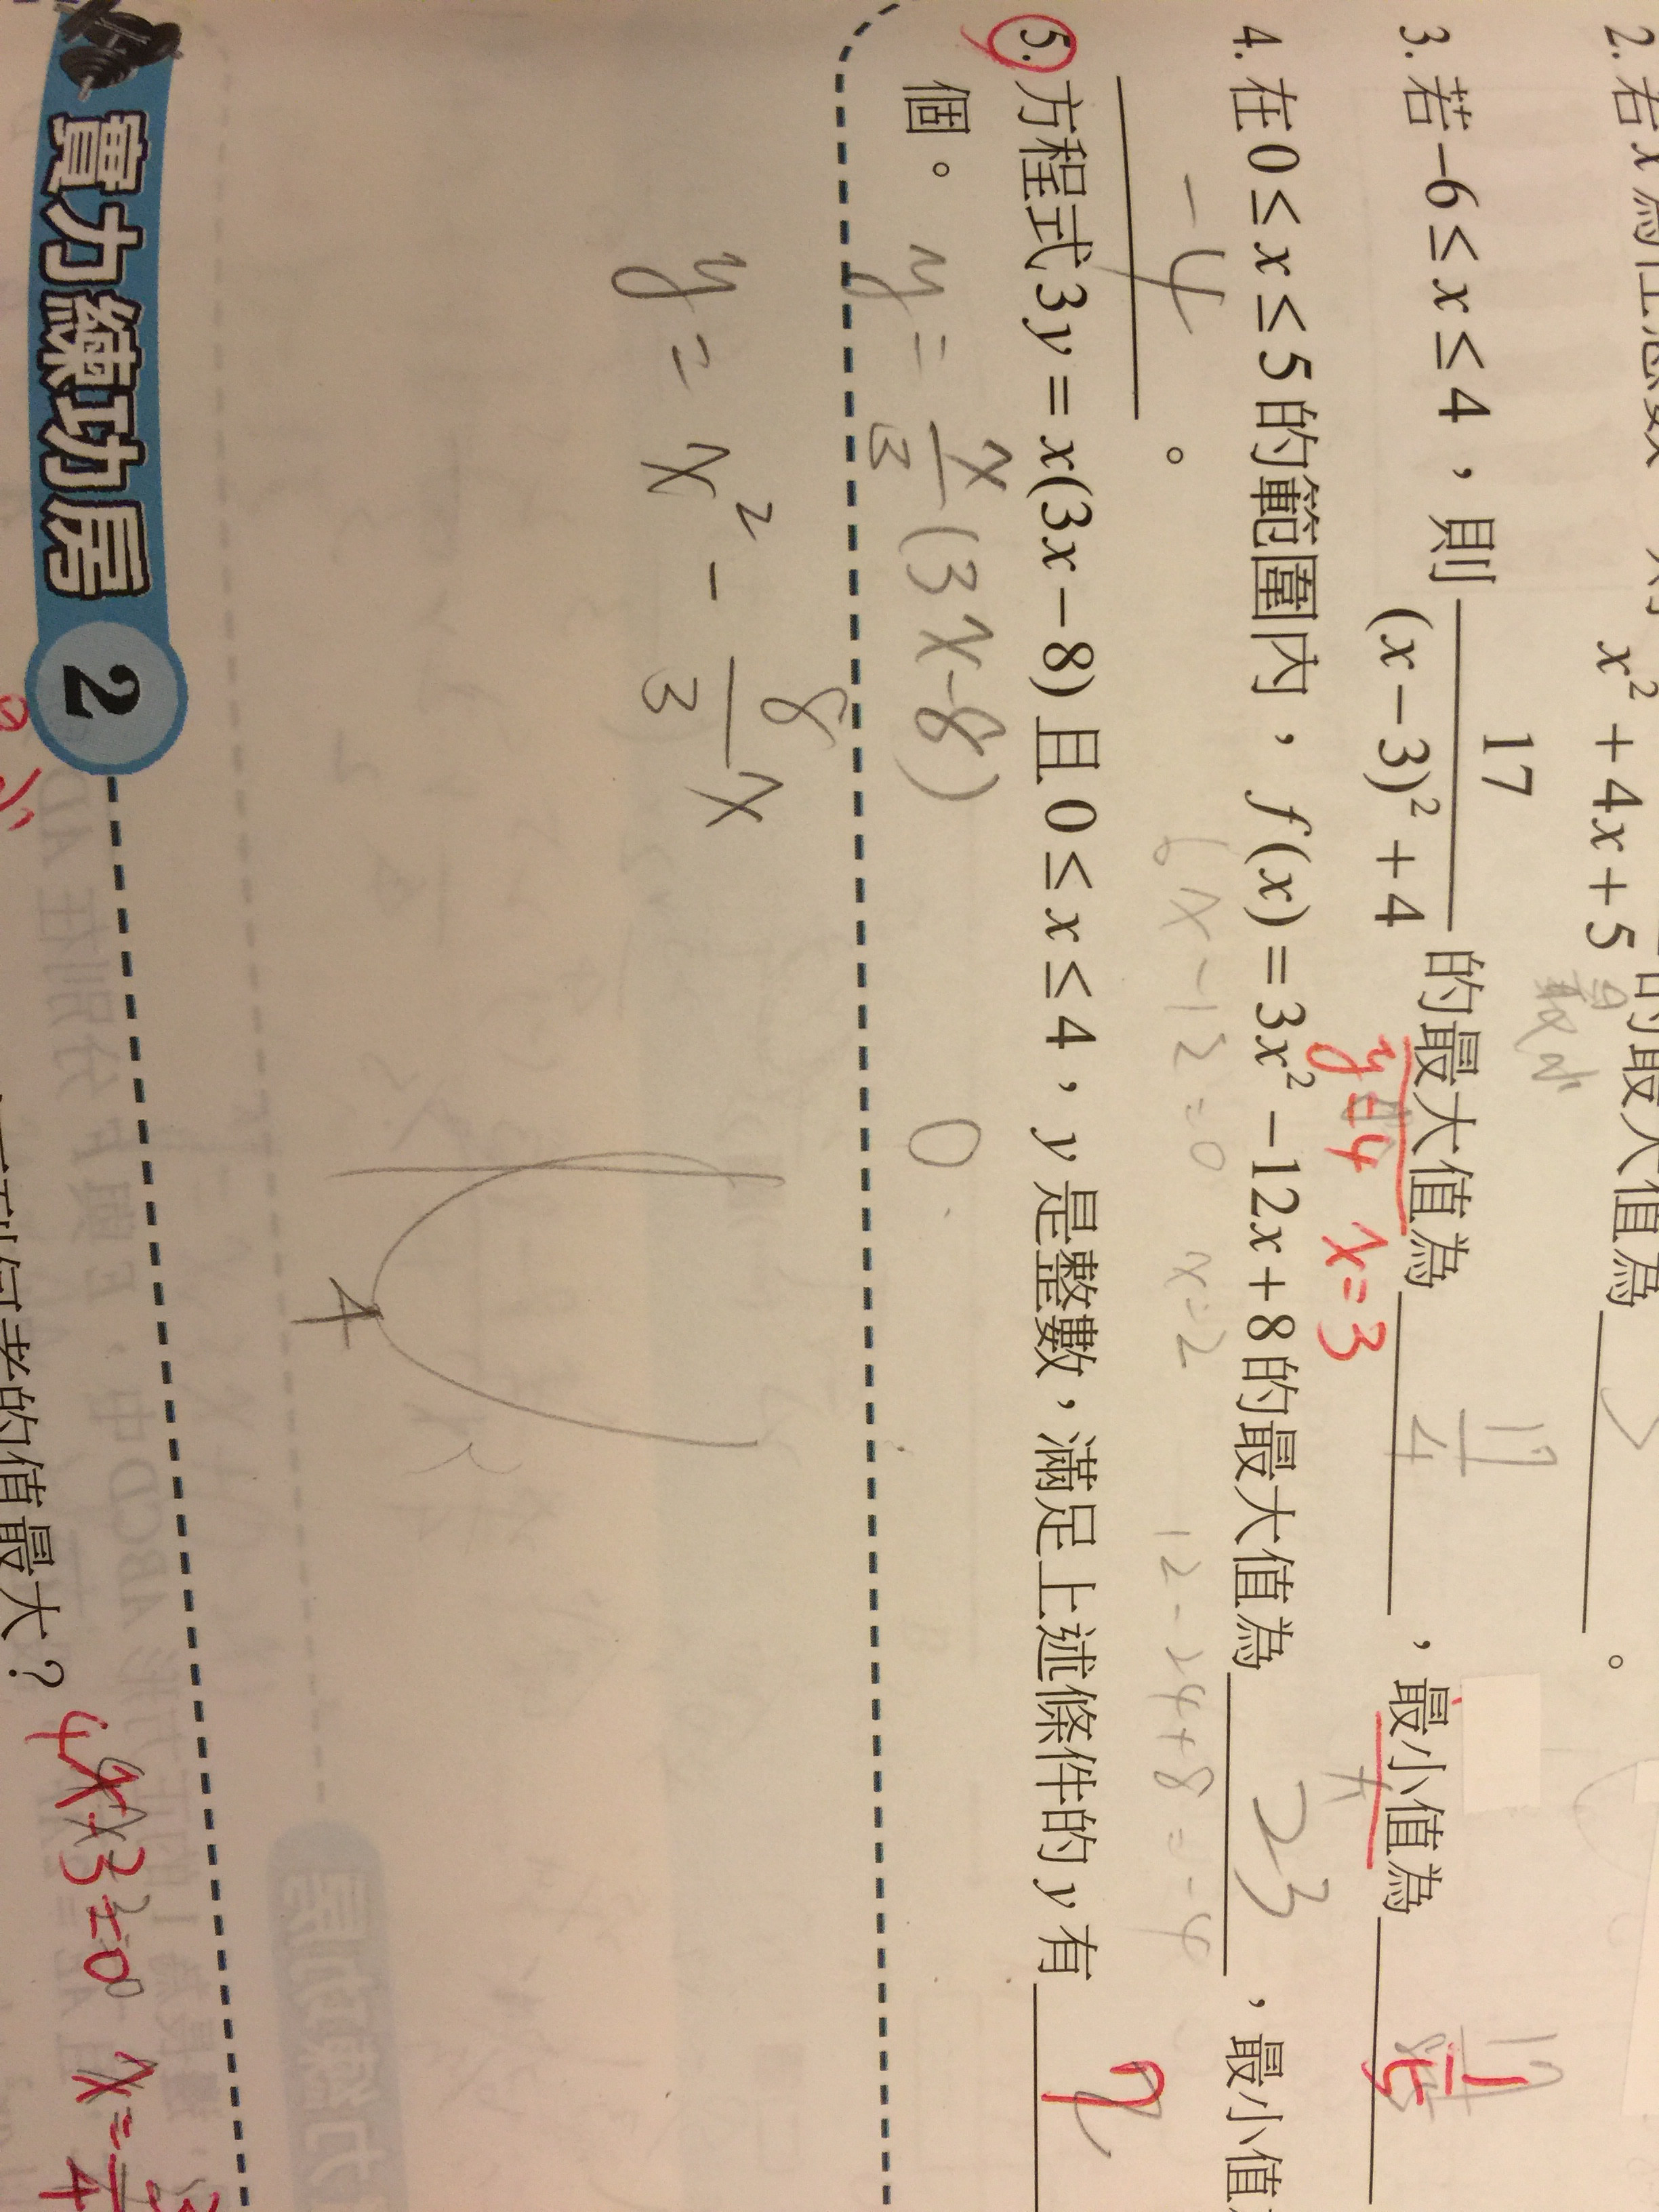 2. 若 x 為任意數
x² + 4x + 5 的最大值為
3. 若 −6 ≤ x ≤ 4，則 17/((x−3)² + 4) 的最大值為 17/4，最小值為 1/5
y=4 x=3
4. 在 0 ≤ x ≤ 5 的範圍內，f(x) = 3x² − 12x + 8 的最大值為 23，最小值
−4 。
6x−12=0 x=2 12−24+8=−4
5. 方程式 3y = x(3x − 8) 且 0 ≤ x ≤ 4，y 是整數，滿足上述條件的 y 有
個。
y = x/3 (3x−8) 0
y = x² − 8/3 x
實力練功房 2
的值最大？ 4x−3=0 x=3/4